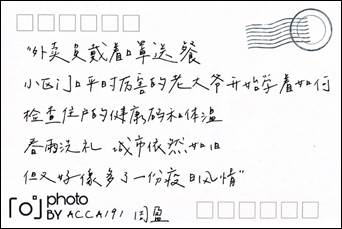 “外卖员戴着口罩送餐
小区门口平时厉害的老大爷开始学着如何
检查住户的健康码和体温
春雨洗礼 城市依然如旧
但又好像多了一份疫日风情”
「o」photo
BY ACCA191 闰盈